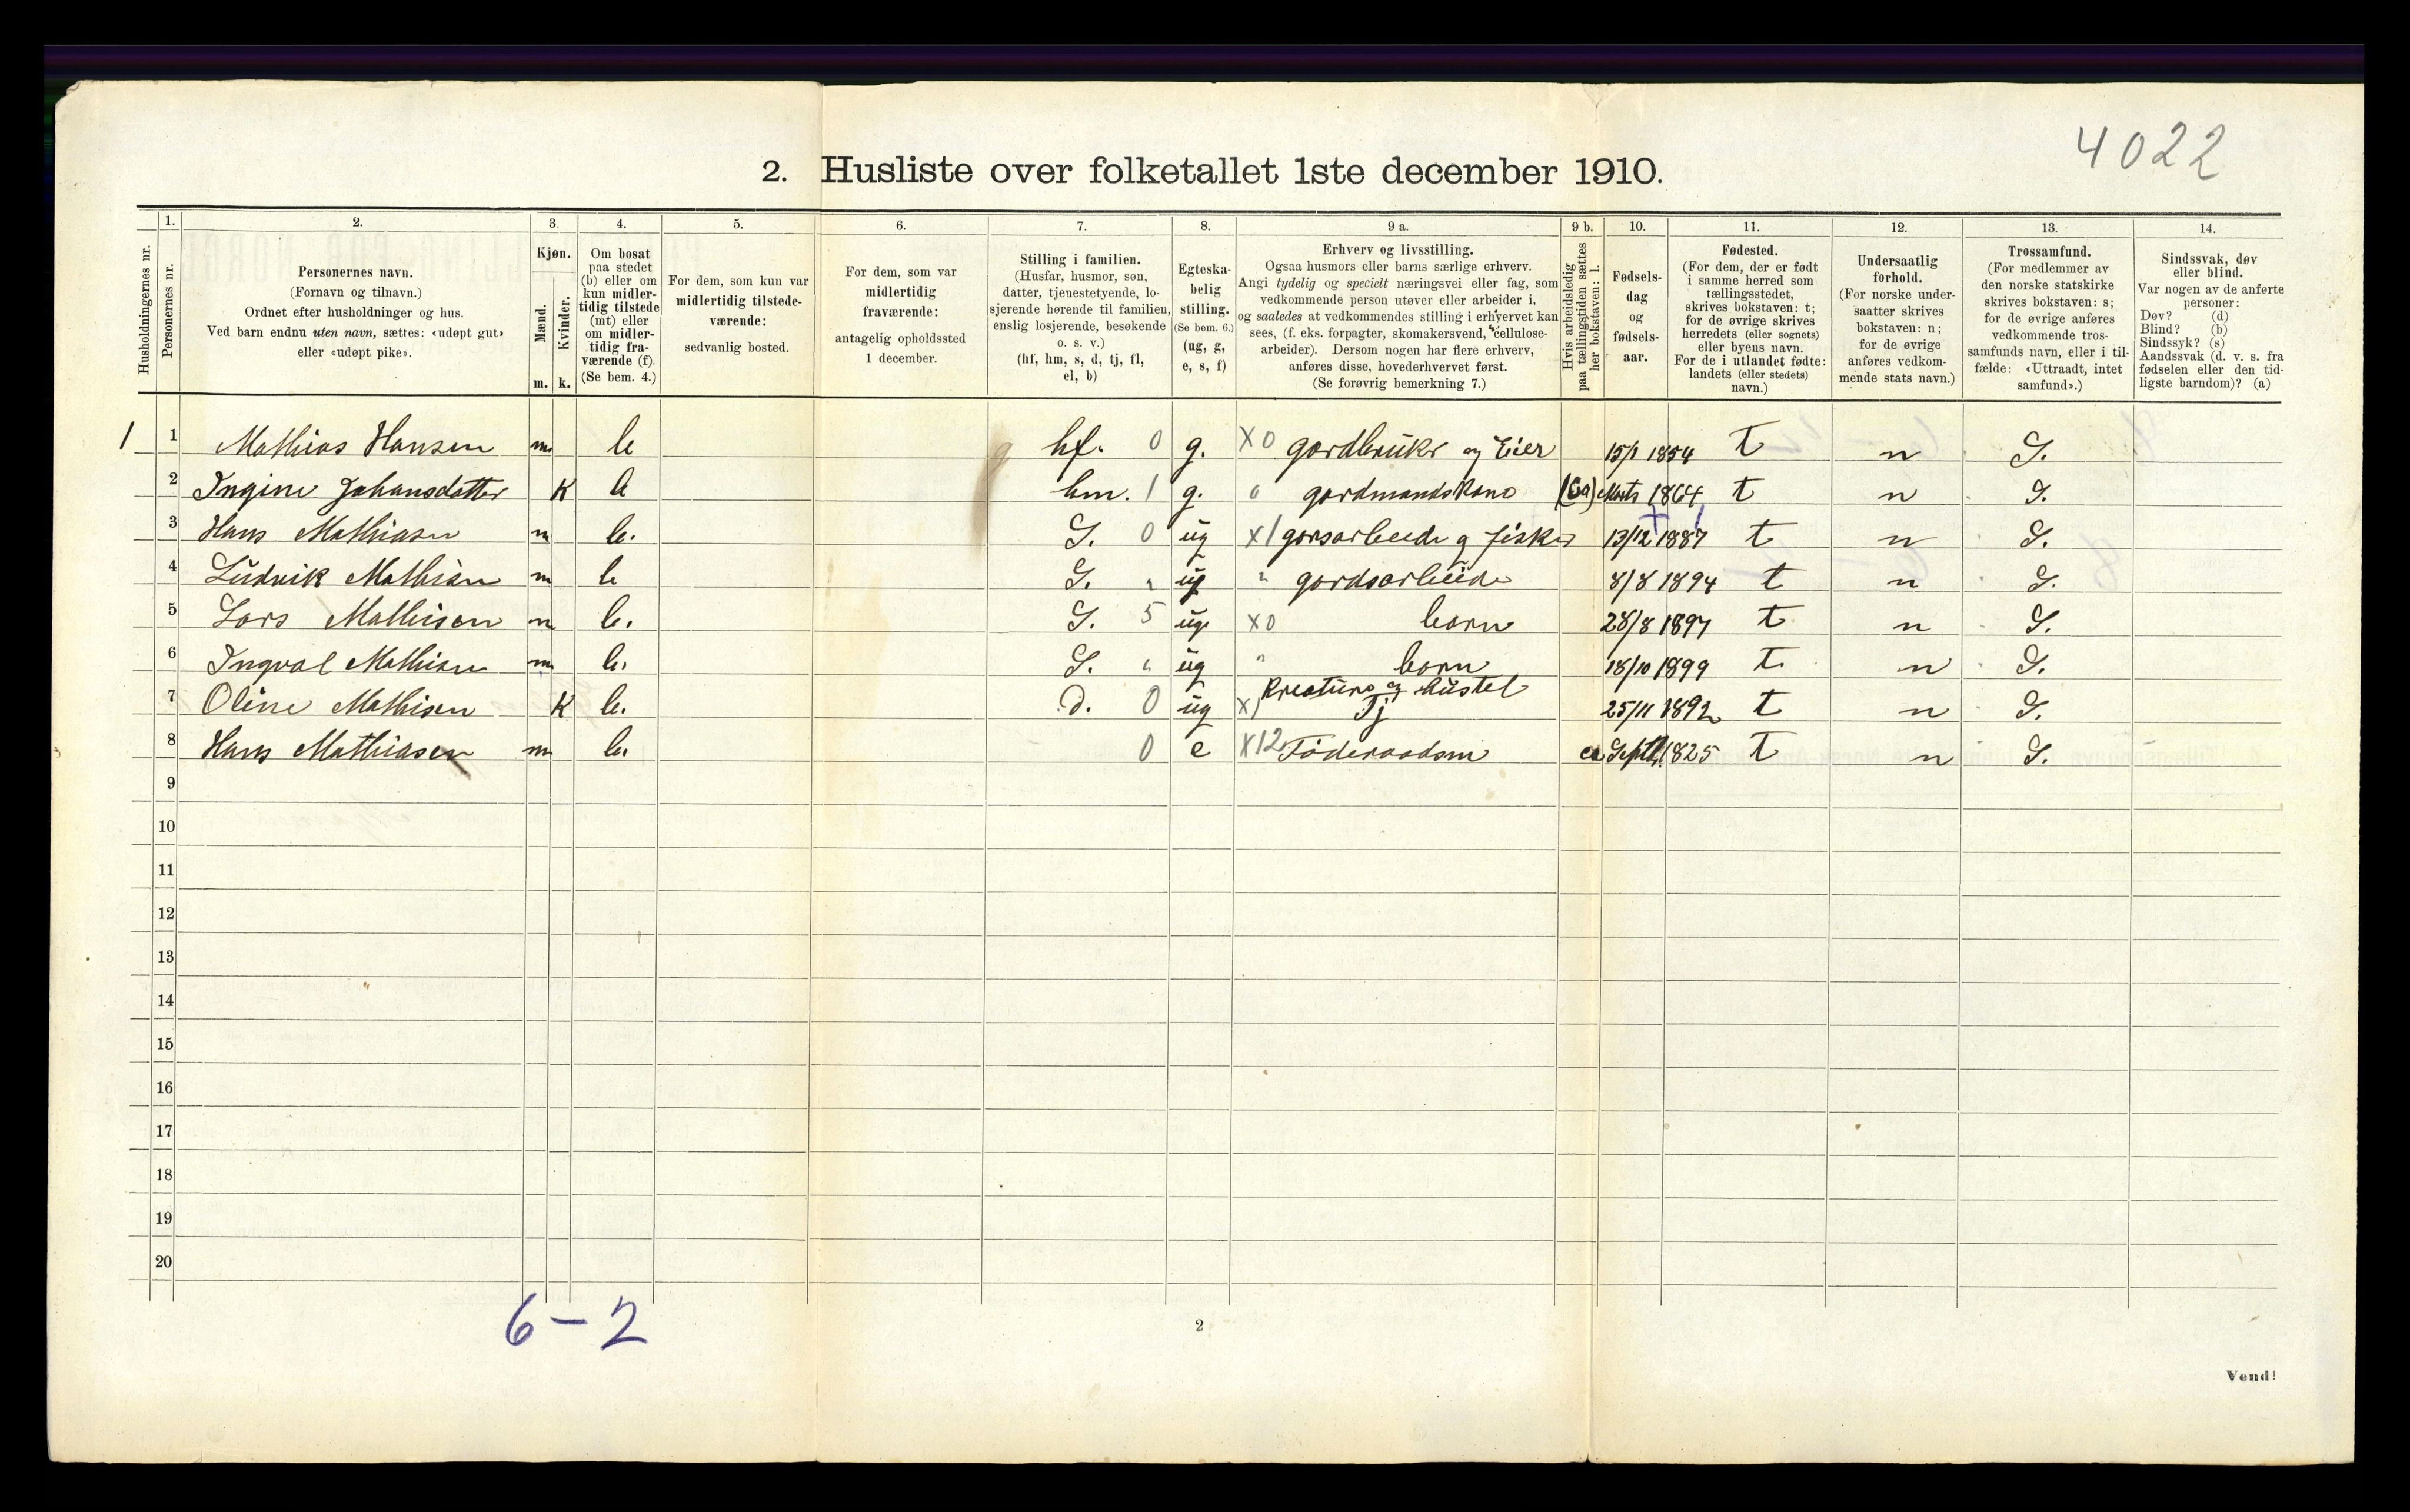 4022
2. Husliste over folketallet 1ste december 1910.
Husholdningernes nr.
1.
Personernes nr.
2.
Personernes navn.
(Fornavn og tilnavn.)
Ordnet efter husholdninger og hus.
Ved barn endnu uten navn, sættes: «udøpt gut»
eller «udøpt pike».
3.
Kjøn.
Mænd.
Kvinder.
m. k.
4.
Om bosat
paa stedet
(b) eller om
kun midler-
tidig tilstede
(mt) eller
om midler-
tidig fra-
værende (f).
(Se bem. 4.)
5.
For dem, som kun var
midlertidig tilstede-
værende:
sedvanlig bosted.
6.
For dem, som var
midlertidig
fraværende:
antagelig opholdssted
1 december.
7.
Stilling i familien.
(Husfar, husmor, søn,
datter, tjenestetyende, lo-
sjerende hørende til familien,
enslig losjerende, besøkende
o. s. v.)
(hf, hm, s, d, tj, fl,
el, b)
8.
Egteska-
belig
stilling.
(Se bem. 6.)
(ug, g,
e, s, f)
9 a.
Erhverv og livsstilling.
Ogsaa husmors eller barns særlige erhverv.
Angi tydelig og specielt næringsvei eller fag, som
vedkommende person utøver eller arbeider i,
og saaledes at vedkommendes stilling i erhvervet kan
sees, (f. eks. forpagter, skomakersvend, cellulose-
arbeider). Dersom nogen har flere erhverv,
anføres disse, hovederhvervet først.
(Se forøvrig bemerkning 7.)
9 b.
Hvis arbeidsledig
paa tællingstiden sættes
her bokstaven: l.
10.
Fødsels-
dag
og
fødsels-
aar.
11.
Fødested.
(For dem, der er født
i samme herred som
tællingsstedet,
skrives bokstaven: t;
for de øvrige skrives
herredets (eller sognets)
eller byens navn.
For de i utlandet fødte:
landets (eller stedets)
navn.)
12.
Undersaatlig
forhold.
(For norske under-
saatter skrives
bokstaven: n;
for de øvrige
anføres vedkom-
mende stats navn.)
13.
Trossamfund.
(For medlemmer av
den norske statskirke
skrives bokstaven: s;
for de øvrige anføres
vedkommende tros-
samfunds navn, eller i til-
fælde: «Uttraadt, intet
samfund».)
14.
Sindssvak, døv
eller blind.
Var nogen av de anførte
personer:
Døv? (d)
Blind? (b)
Sindssyk? (s)
Aandssvak (d. v. s. fra
fødselen eller den tid-
ligste barndom)? (a)
1 1 Mathias Hansen m b hf. 0 g. X0 gardbruker og Eier 15/1 1854 t n S.
2 Ingine Johansdatter K b hm. 1 g. " gardmandskone (Ca) Marts 1864 t n S.
3 Hans Mathiasen m b. S. 0 ug X1 gorsarbeide og fisker 13/12 1887 t n S.
4 Ludvik Mathisen m b S. " ug " gardsarbeide 8/8 1894 t n S.
5 Lars Mathisen m b. S. 5 ug X0 barn 28/8 1897 t n S.
6 Ingval Mathisen m b. S. " ug " barn 18/10 1899 t n S.
7 Oline Mathisen K b. d. 0 ug X1 Kreaturs og hüstel Tj 25/11 1892 t n S.
8 Hans Mathiasen m b. 0 e X12 Föderaadsm ca Septb. 1825 t n S.
9
10
11
12
13
14
15
16
17
18
19
20
6 – 2
2
Vend!